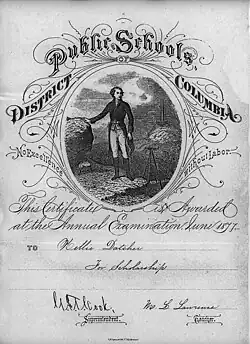 Public Schools
OF
DISTRICT COLUMBIA
No Excellence without Labor.
This Certificate is Awarded
at the Annual Examination June 1877.
TO Nellie Datcher
For Scholarship
Superintendent.